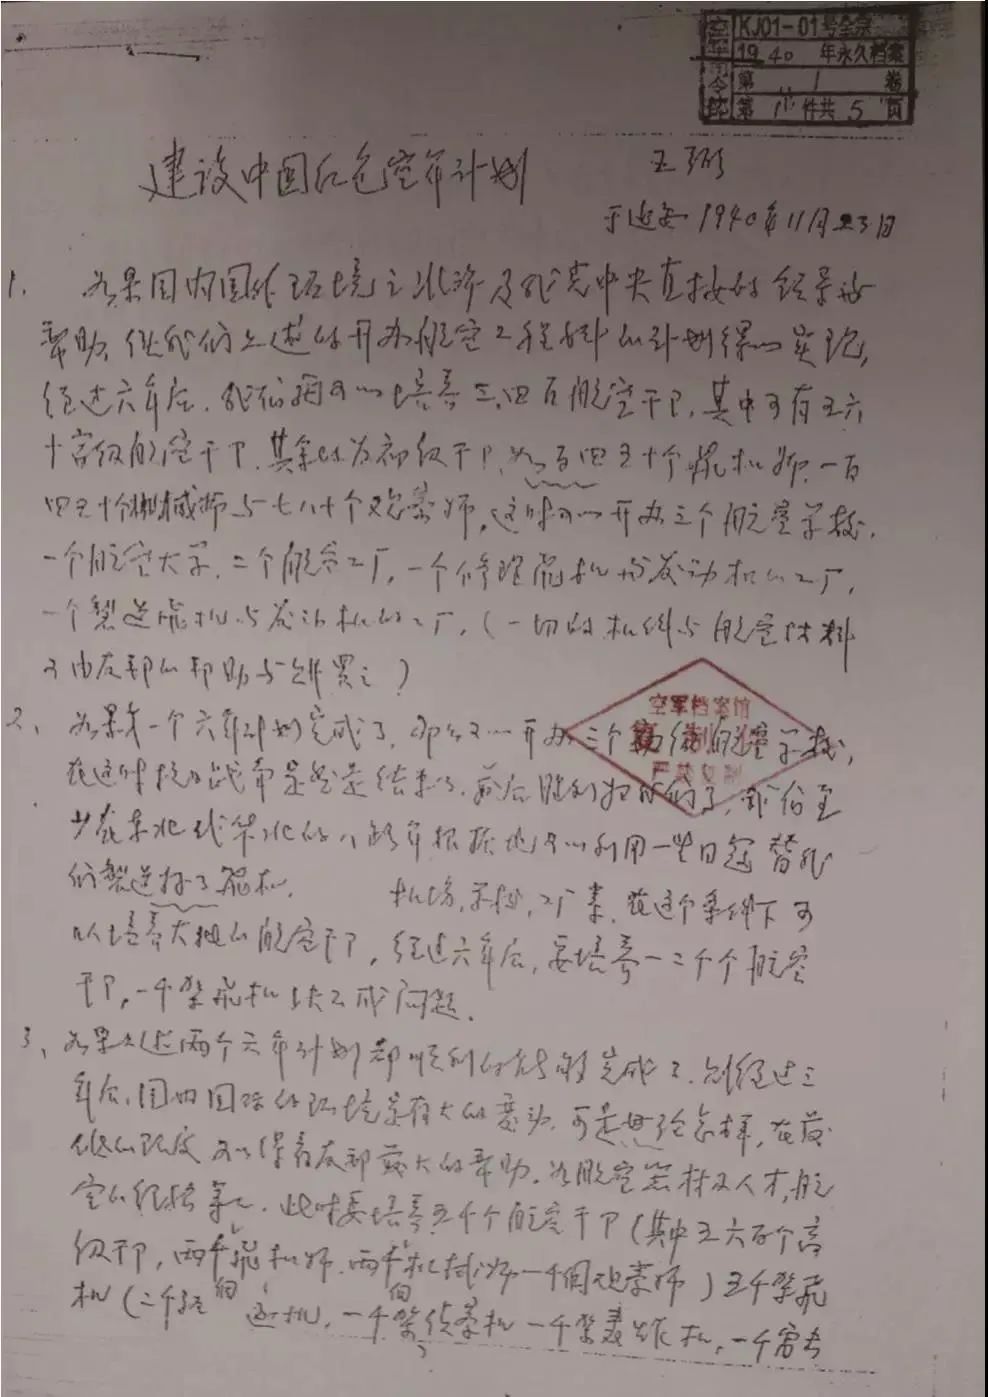 空军司令部
KJ01-01号全宗
1940 年永久档案
第 1 卷
第 件共 5 页
建设中国红色空军计划
王弼
于延安1940年11月23日
1. 如果国内国外环境之允许及我党中央直接的领导
帮助,使我们上述的开办航空工程科的计划得以实现,
经过六年后,我们可以培养三四百航空干部,其中可有五六
十高级航空干部,其余的为初级干部,如百四五十个飞机师,一百
四五十个机械师与七八十个观察师,这时可以开办三个航空学校,
一个航空大学,二个航空工厂,一个修理飞机与发动机的工厂,
一个製造飞机与发动机的工厂,(一切的机件与航空材料
可由友邦的帮助与购买之)
2、如果第一个六年计划完成了,那么可以开办三个高级航空学校,
在这时抗日战争是总是结束了,最后胜利归我们了,我们至
少在东北或华北的八路军根据地可以利用一些日寇替我
们製造好了飞机,机场,学校,工厂等,在这个条件下可
以培养大批的航空干部,经过六年后,要培养一二千个航空
干部,一千架飞机是不成问题。
3、如果上述两个六年计划都顺利的能够完成了,则经过三
年后,国内国际的环境是有大的变动,可是无论怎样,在
可以得着友邦最大的帮助,如航空器材及人才,航
空的经验等,此时要培养五千个航空干部(其中五六百个高
级干部,两千飞机师,两千机械师一千个观察师)五千架飞
机(二千 驱逐机,一千架侦察机一千架轰炸机,一千
空军档案馆
复制件
严禁复制